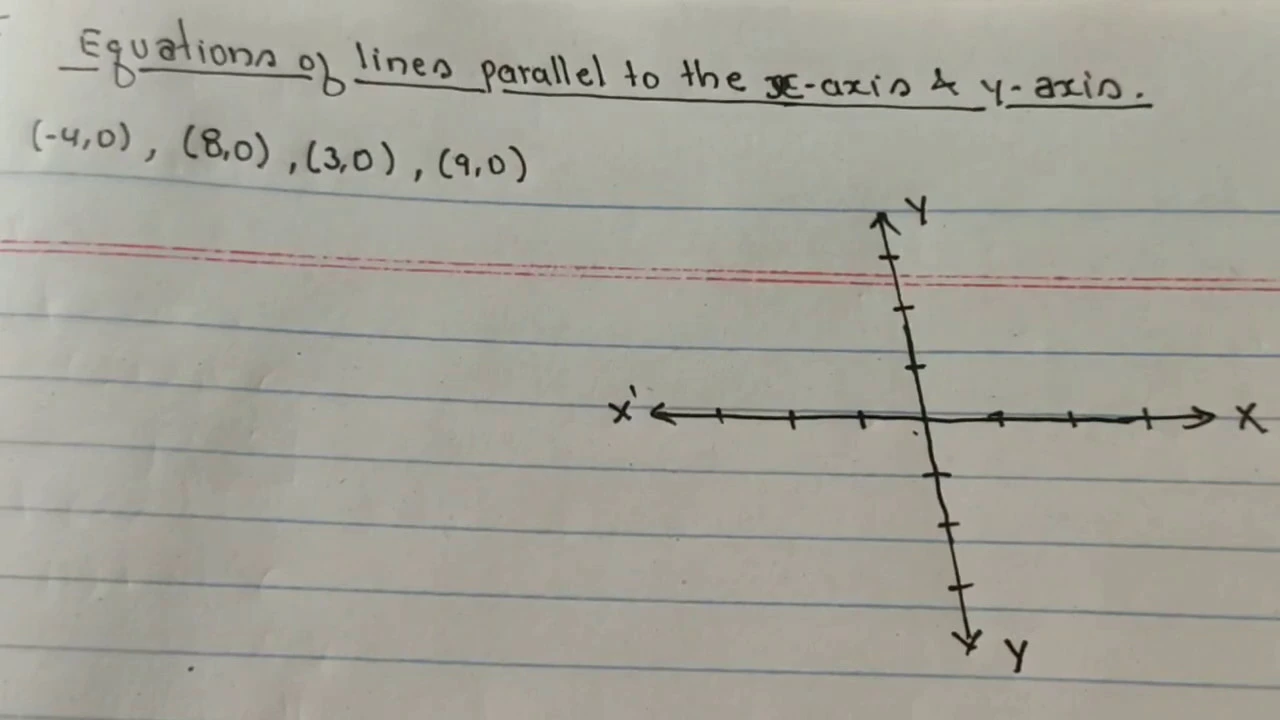 Equations of lines parallel to the x-axis & y-axis.
(-4,0), (8,0), (3,0), (9,0)
Y
X' X
Y